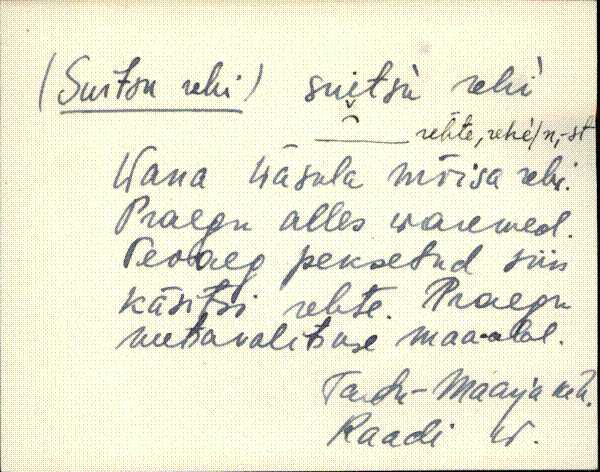 (Suitsu rehi) suitsu rehi
rehte, rehe/n, -st
Wana Wäsula mõisa rehi.
Praegu alles waremed.
Teoaeg peksetud siis
käsitsi rehte. Praegu
metsavalitsuse maa-alal.
Tartu-Maarja khk.
Raadi w.